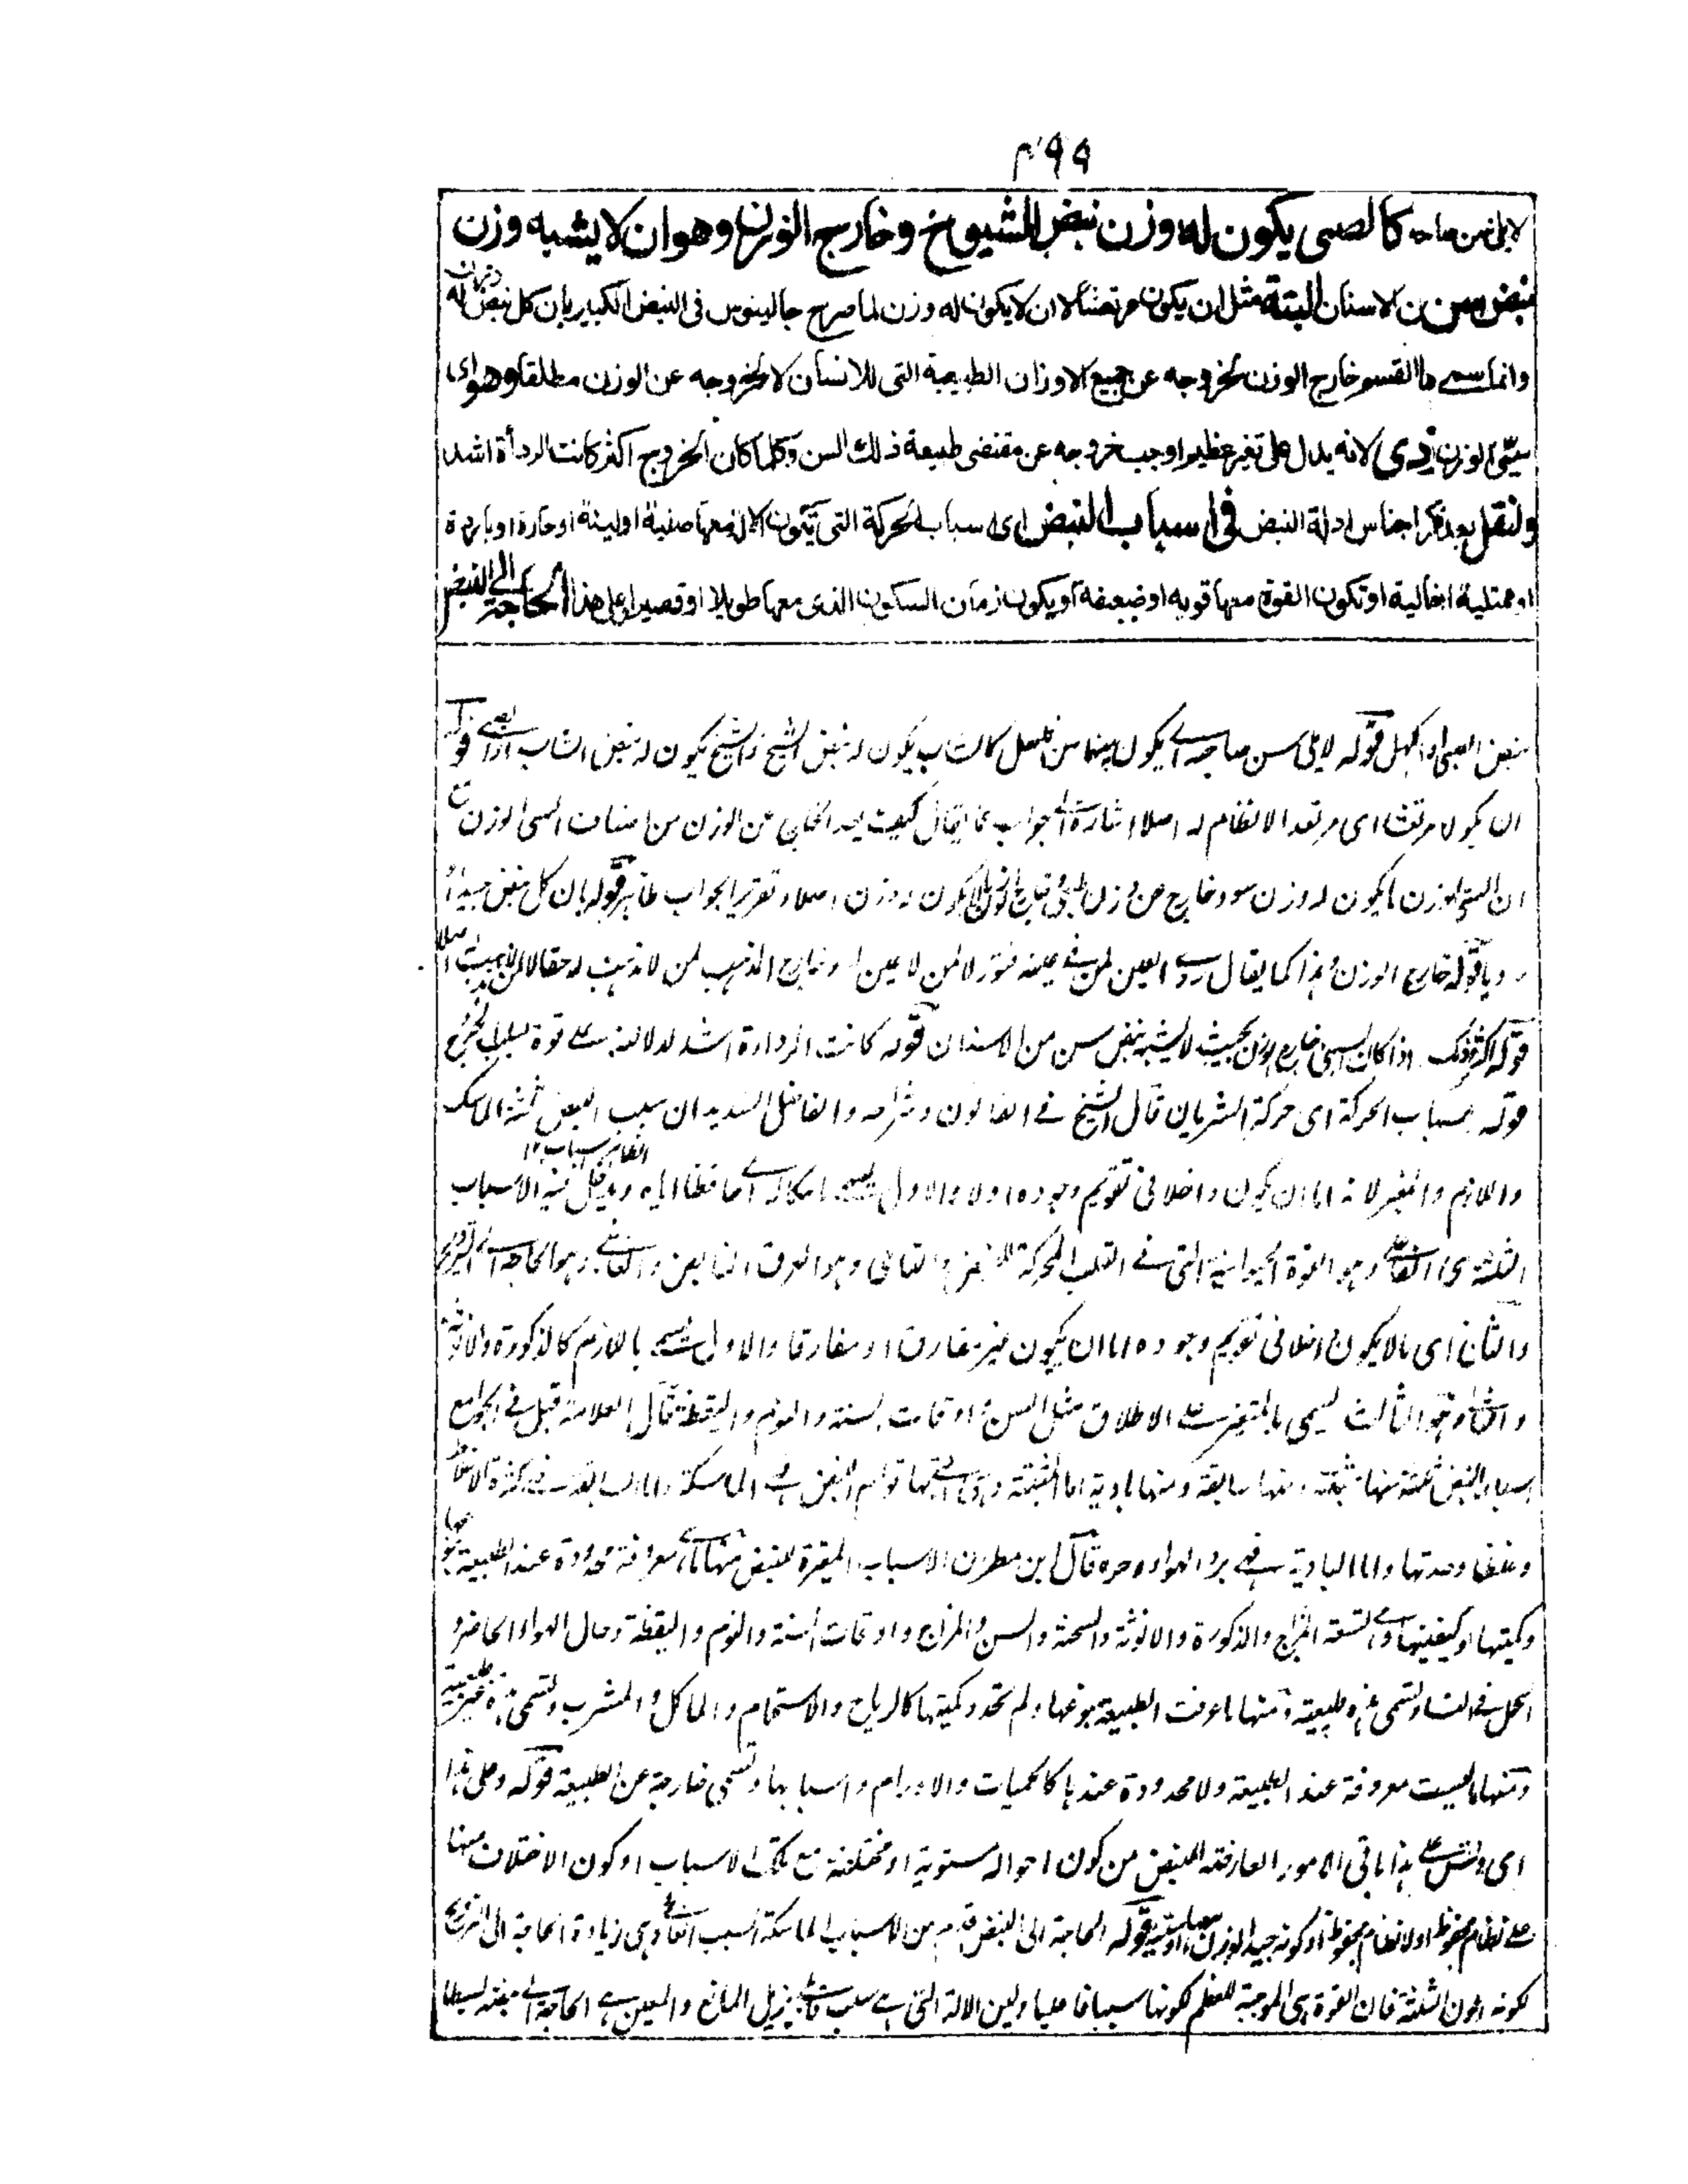 ۴۹۹
كالصبي يكون له وزن نبض الشيوخ وخارج الوزن وهو ان لا يشبه وزن
نبض سن من الاسنان البتة مثل ان يكون مرتعشا لا ان لا يكون له وزن لما صرح جالينوس في النبض الكبير بان كل نبض له
وانما سمي هذا القسم خارج الوزن لخروجه عن جميع الاوزان الطبيعية التي للانسان لا لخروجه عن الوزن مطلقا وهو اي
سيئ الوزن ردي لانه يدل على تغير عظيم اوجب خروجه عن مقتضى طبيعة ذلك السن وكلما كان الخروج اكثر كانت الردأة اشد
ولنقل بعد ذكر اجناس ادلة النبض في اسباب النبض اي اسباب الحركة التي تكون الالة معها صلبة او لينة او حارة او باردة
او ممتلية او خالية او تكون القوة معها قويه او ضعيفه او يكون زمان السكون الذي معها طويلا او قصيرا وعلى هذا الحاجة الى النبض
نبض الصبي او الكهل قوله لا يلي سن صاحبه اي يكون بينهما سن كالشاب يكون له نبض الشيخ والشيخ يكون له نبض الشاب
ان يكون مرتعشا اي مرتعد الانتظام له اصلا اشارة الى جواب عما يقال كيف يعد الخارج عن الوزن من السيئ الوزن مع
ان السيئ الوزن ما يكون له وزن سوء خارج عن وزن لا يكون له وزن اصلا وتقرير الجواب ظاهر قوله بان كل نبض
قوله خارج الوزن وهذا كما يقال ردي العين لمن في عينه فتور لا لمن لا عين له وخارج المذهب لمن لا مذهب له حقا لا لمن
اذا كان السيئ خارج الوزن بحيث لا يشبه نبض سن من الاسنان قوله كانت الرداءة اشد لدلالته على قوة
قوله اسباب الحركة اي حركة الشريان قال الشيخ في القانون وشراحه والفاضل السديد ان سبب النبض ثلثة الماسك
واللازم والمغير لانه اما ان يكون داخلا في تقويم وجوده اولا والاول يسمى ماسكا اي حافظا اياه ويدخل فيه الاسباب
الثلثة اي الفاعلي وهو القوة الحيوانية التي في القلب المحركة للنبض والقابل وهو العرق النابض والغائي وهو الحاجة الى الترويح
والثاني اي ما لا يكون داخلا في تقويم وجوده اما ان يكون غير مفارق او مفارقا والاول يسمى باللازم كالذكورة والانوثة
والثاني وهو الثالث يسمى بالمغير على الاطلاق مثل السن واوقات السنة والنوم واليقظة قال العلامة قيل في الجوامع
اسباب النبض ثلثة منها مثبتة ومنها سابقة ومنها بادية اما المثبتة قوام النبض هي الماسكة واما السابقة كثرة الاخلاط
وغلظها وحدتها واما البادية فهي برد الهواء وحره قال ابن مطران الاسباب المغيرة للنبض منها ما هي معروفة محدودة عند الطبيعة
وكميتها وكيفيتها وهي تسعة المزاج والذكورة والانوثة والسحنة والسن والمزاج واوقات السنة والنوم واليقظة وحال الهواء الحاضر و
الحمل في النساء وتسمى هذه طبيعية ومنها ما عرفت الطبيعة نوعها ولم تحدد كميتها كالرياح والاستحمام والماكل والمشرب وتسمى هذه غير طبيعية
ومنها ما ليست معروفة عند الطبيعة ولا محدودة عندها كالحميات والاورام واسبابها وتسمى خارجة عن الطبيعة قوله وعلى هذا
اي وقس على هذا باقي الامور العارضة للنبض من كون احواله مستوية او مختلفة مع تلك الاسباب او كون الاختلاف معها
على نظام محفوظ او لا نظام محفوظ او كونه جيد الوزن قوله الحاجة الى النبض من الاسباب الماسكة السبب الغائي وهي زيادة الحاجة الى الترويح
لكونه الثلثة فان القوة هي الموجبة للعظم لكونها سببا فاعليا ولين الالة التي هي سبب يزيل المانع والمعين هي الحاجة